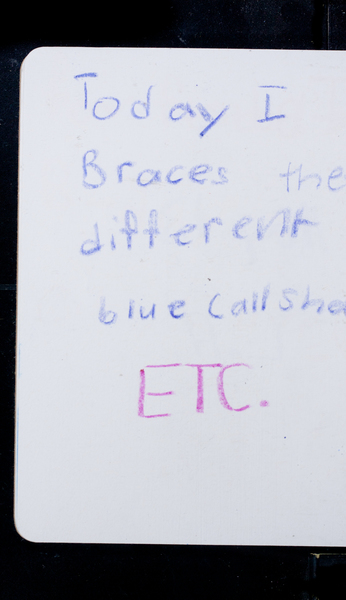 Today I
Braces the
different
blue Call She
ETC.